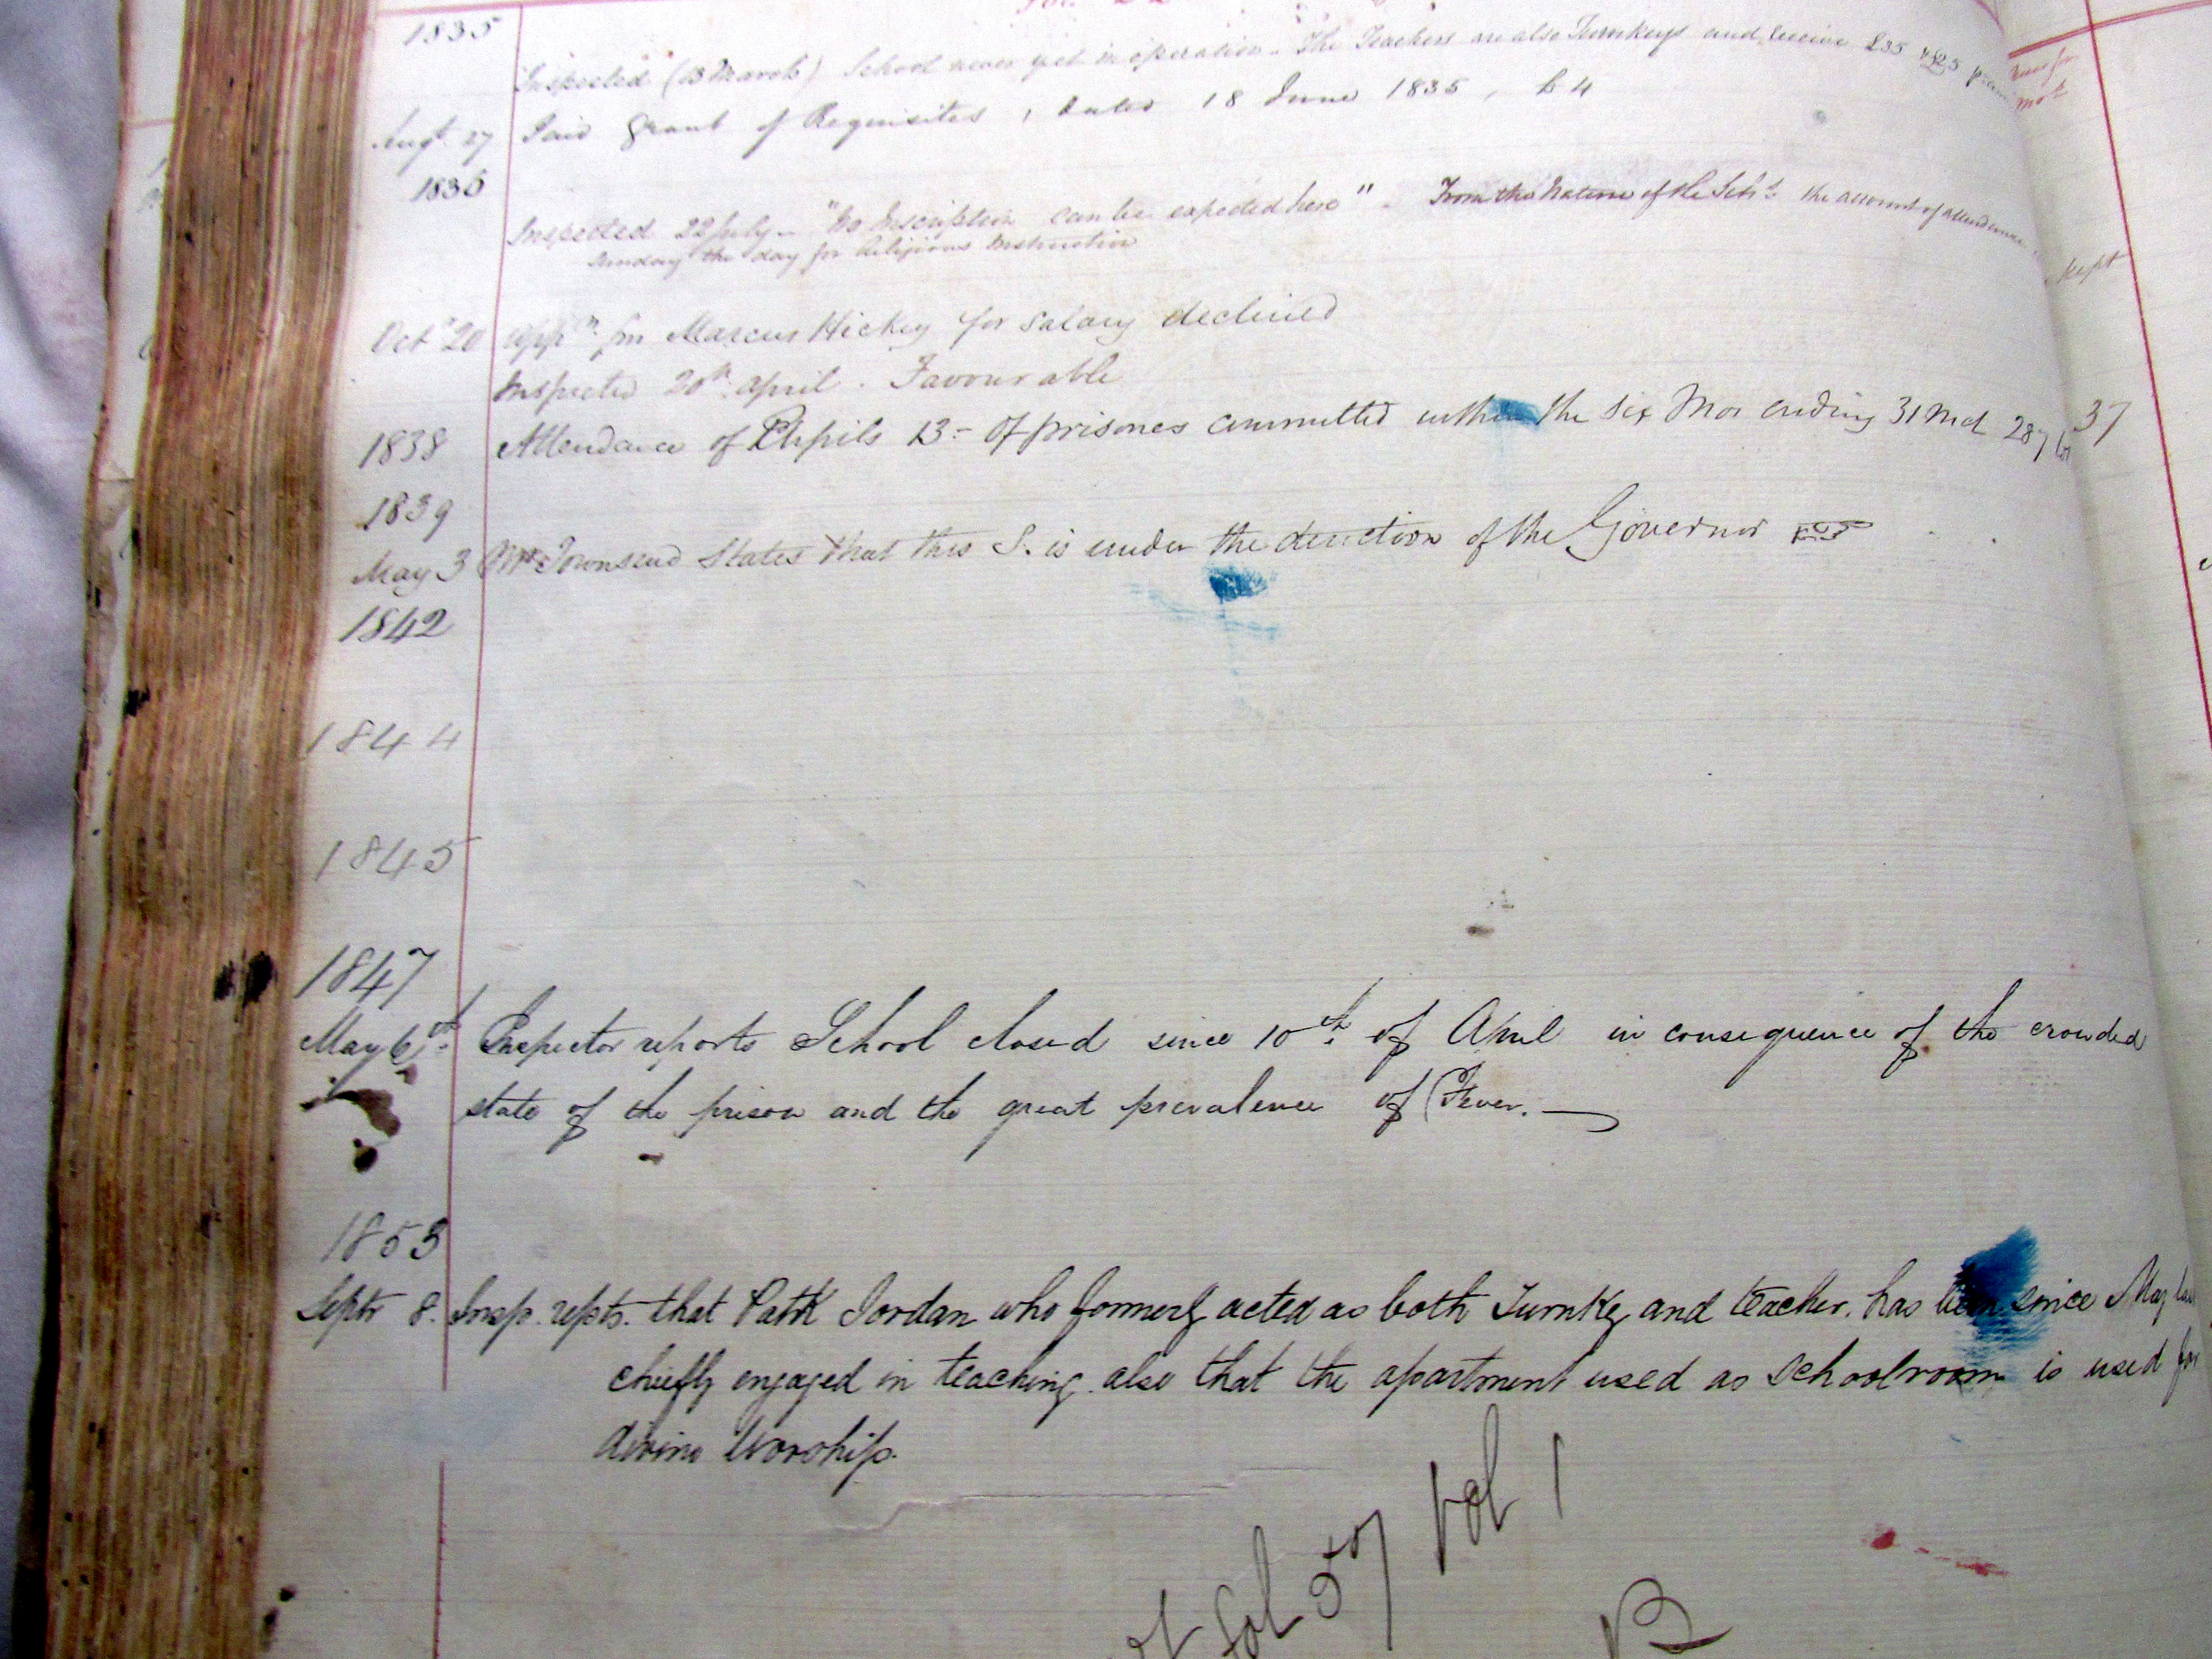 1835
Inspected (13 March) School never yet in operation - The Teachers are also Turnkeys and receive £35 & £25 p.
Augt. 27 Paid Grant of Requisites, dated 18 June 1835, £4
1836
Inspected 22 July - "No Inscription can be expected here" - From the Nature of the Sch. the account of attendance kept
Sunday the day for Religious Instruction
Octr 20 appn. fm Marcus Hickey for salary declined
Inspected 20th April. Favourable
1838 Attendance of Pupils 13 - Of prisones committed within the six Mos ending 31 Mch 287 37
1839
May 3 Mr. Townsend States that this S. is under the direction of the Governor
1842
1844
1845
1847
May 6th. Inspector reports School closed since 10th. of April in consequence of the crowded
state of the prison and the great prevalence of Fever. —
1853
Septr 8. Insp. repts. that Patk Jordan who formerly acted as both Turnkey and teacher. has been since May last
chiefly engaged in teaching. also that the apartment used as Schoolroom is used for
divine Worship.
fol 57 Vol 1
B